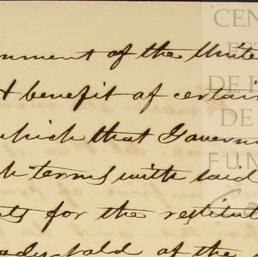 nment of the Unite
& benefit of certain
which that Governm
h terms with said
ts for the restitut
of the
CEN
DE
DE
FUN